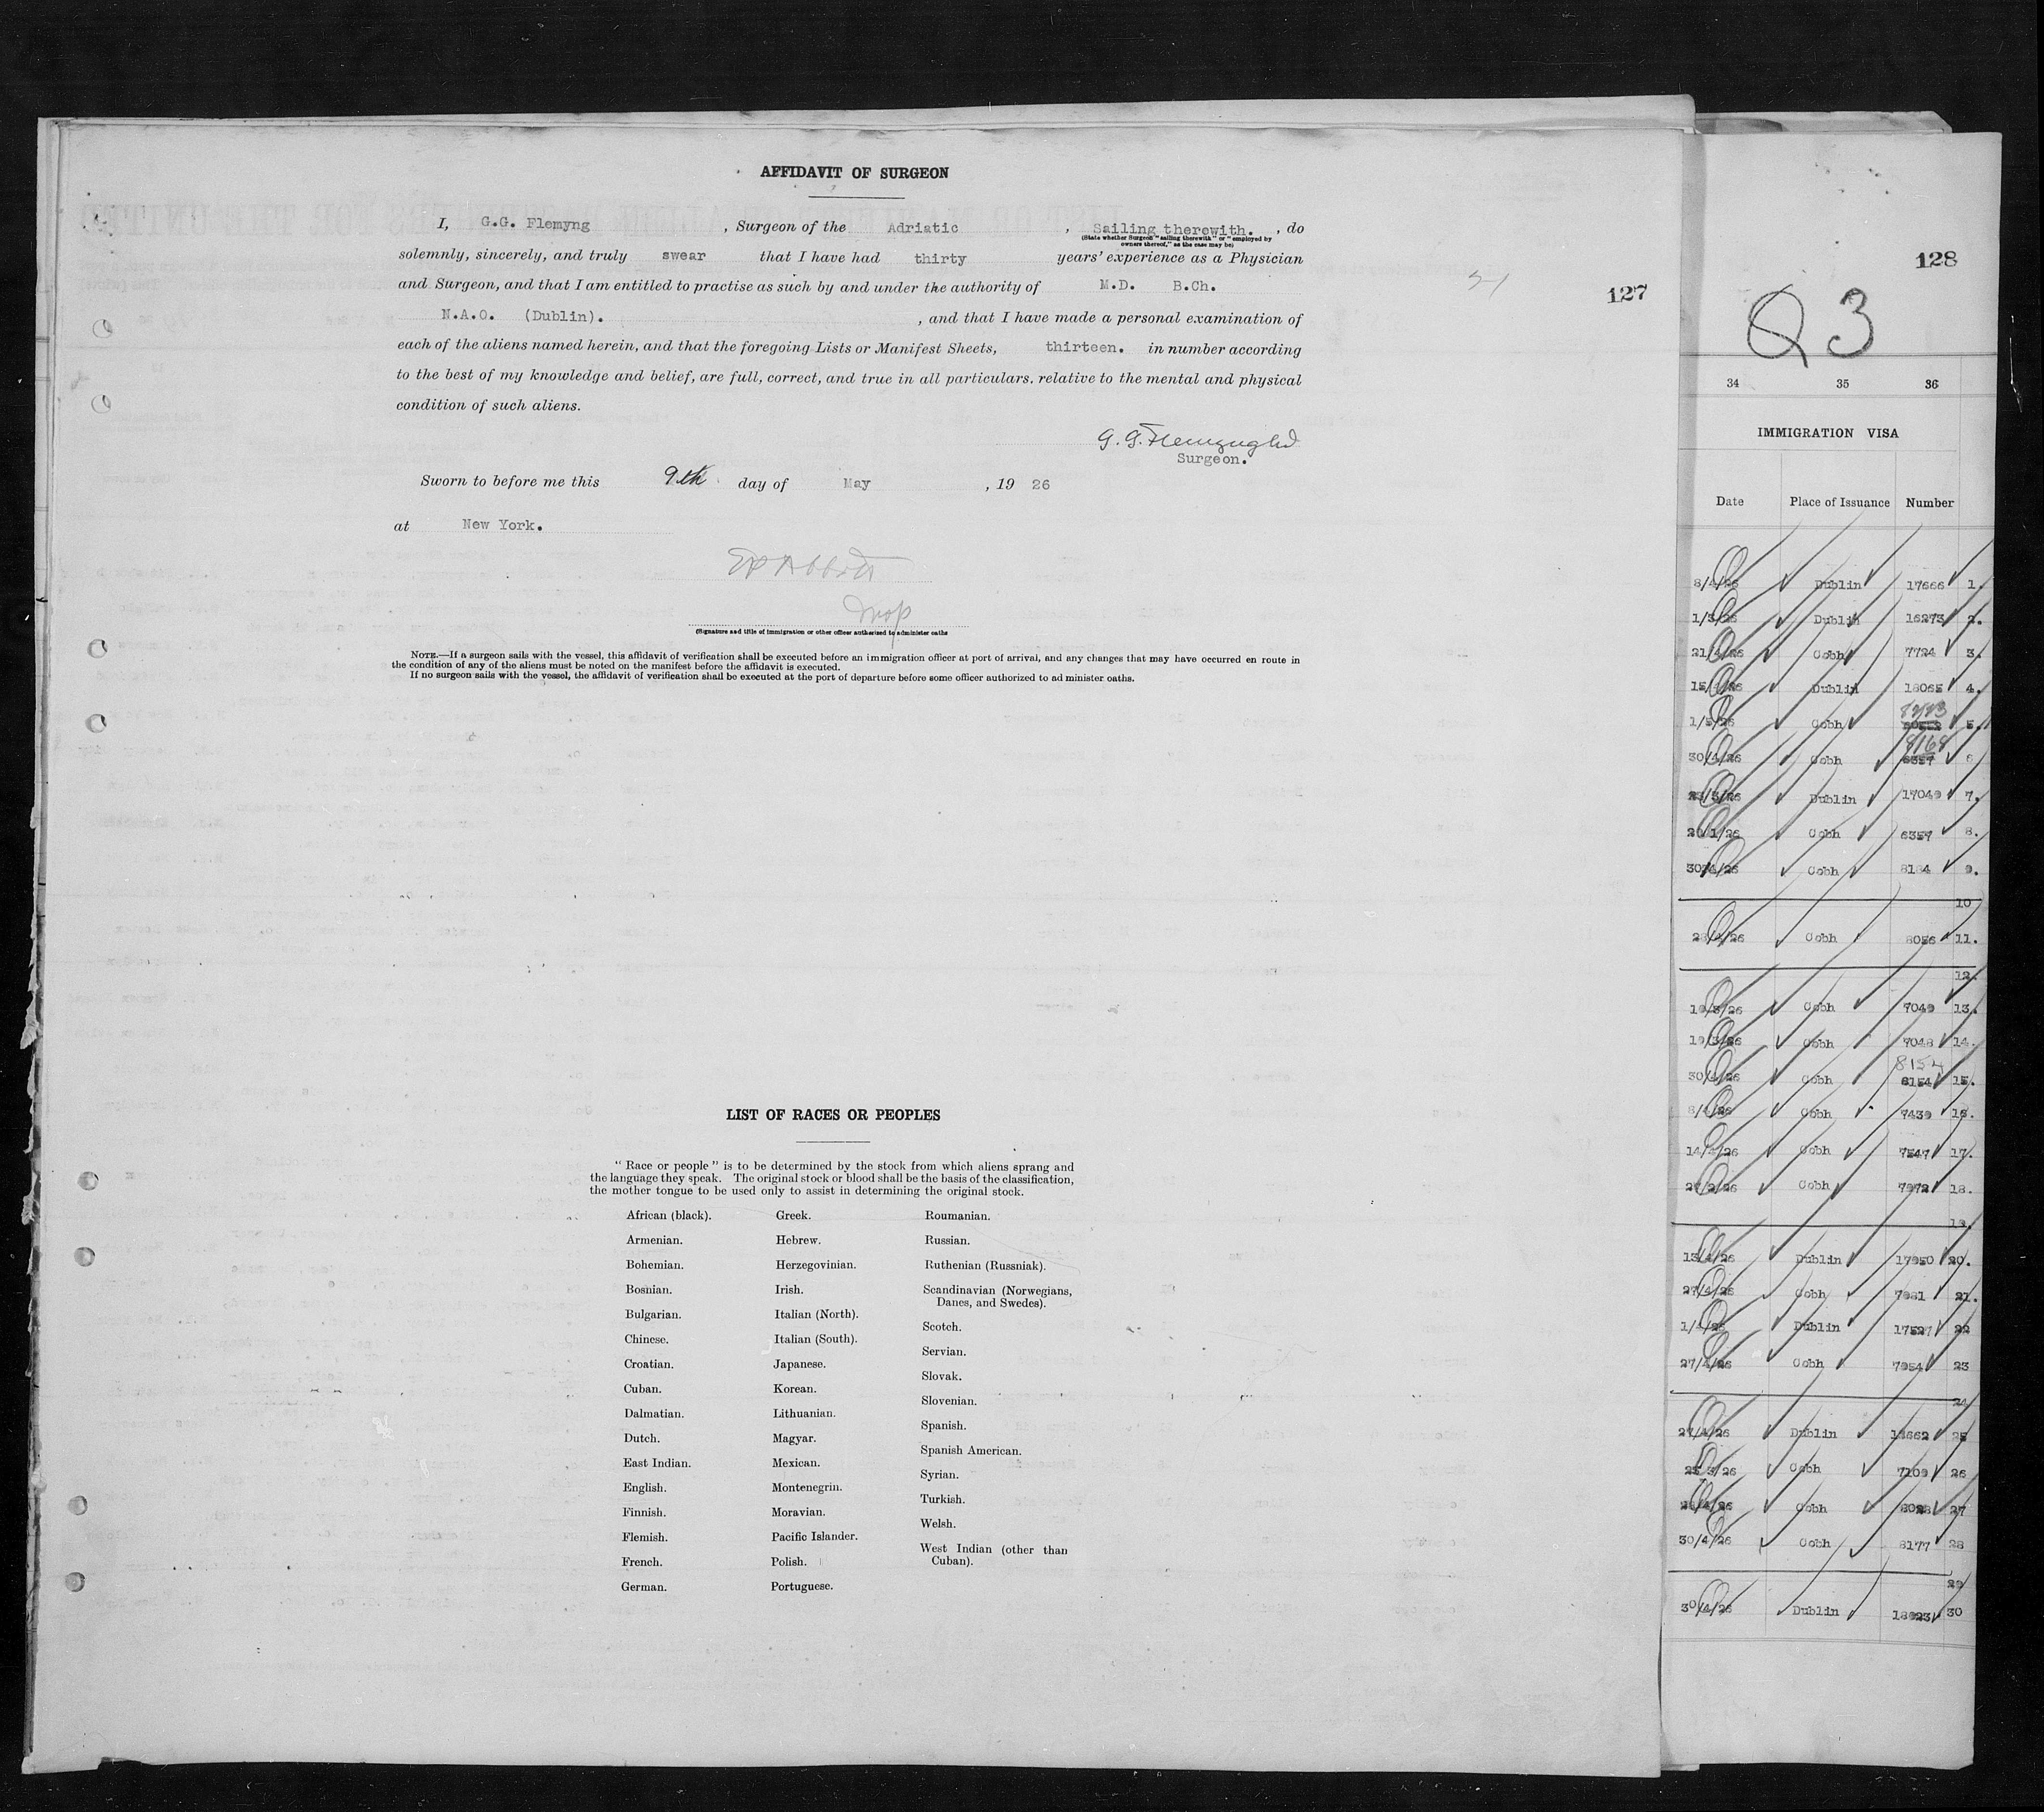 AFFIDAVIT OF SURGEON
I, G.G. Flemyng , Surgeon of the Adriatic , Sailing therewith. , do
(State whether Surgeon "sailing therewith" or "employed by
owners thereof," as the case may be)
solemnly, sincerely, and truly swear that I have had thirty years' experience as a Physician
and Surgeon, and that I am entitled to practise as such by and under the authority of M.D. B.Ch.
N.A.O. (Dublin). , and that I have made a personal examination of
each of the aliens named herein, and that the foregoing Lists or Manifest Sheets, thirteen. in number according
to the best of my knowledge and belief, are full, correct, and true in all particulars. relative to the mental and physical
condition of such aliens.
G. G. Flemyng
Surgeon.
Sworn to before me this 9th day of May , 19 26
at New York.
(Signature and title of immigration or other officer authorized to administer oaths
NOTE.—If a surgeon sails with the vessel, this affidavit of verification shall be executed before an immigration officer at port of arrival, and any changes that may have occurred en route in
the condition of any of the aliens must be noted on the manifest before the affidavit is executed.
If no surgeon sails with the vessel, the affidavit of verification shall be executed at the port of departure before some officer authorized to ad minister oaths.
127
LIST OF RACES OR PEOPLES
"Race or people" is to be determined by the stock from which aliens sprang and
the language they speak. The original stock or blood shall be the basis of the classification,
the mother tongue to be used only to assist in determining the original stock.
African (black).
Armenian.
Bohemian.
Bosnian.
Bulgarian.
Chinese.
Croatian.
Cuban.
Dalmatian.
Dutch.
East Indian.
English.
Finnish.
Flemish.
French.
German.
Greek.
Hebrew.
Herzegovinian.
Irish.
Italian (North).
Italian (South).
Japanese.
Korean.
Lithuanian.
Magyar.
Mexican.
Montenegrin.
Moravian.
Pacific Islander.
Polish.
Portuguese.
Roumanian.
Russian.
Ruthenian (Russniak).
Scandinavian (Norwegians,
Danes, and Swedes).
Scotch.
Servian.
Slovak.
Slovenian.
Spanish.
Spanish American.
Syrian.
Turkish.
Welsh.
West Indian (other than
Cuban).
128
Q3
34 35 36
IMMIGRATION VISA
Date Place of Issuance Number
8/4/26 Dublin 17666 1.
Dublin 16273 2.
21/4/26 Cobh 7724 3.
Dublin 4.
1/5/26 Cobh 5.
30/4/26 Cobh 8168 6
Dublin 17049 7.
20/1/26 Cobh 6357 8.
30/4/26 Cobh 8184 9.
10
28/4/26 Cobh 8056 11.
12.
19/3/26 Cobh 7049 13.
19/3/26 Cobh 7048 14.
8154
30/4/26 Cobh 15.
8/4/26 Cobh 7439 16.
14/4/26 Cobh 7547 17.
Cobh 7972 18.
19.
13/4/26 Dublin 20.
27/4/26 Cobh 7981 21.
1/4/26 Dublin 17527 22
27/4/26 Cobh 7954 23
24
27/4/26 Dublin 25
Cobh 7109 26
28/4/26 Cobh 27
30/4/26 Cobh 8177 28
29
30/4/26 Dublin 30